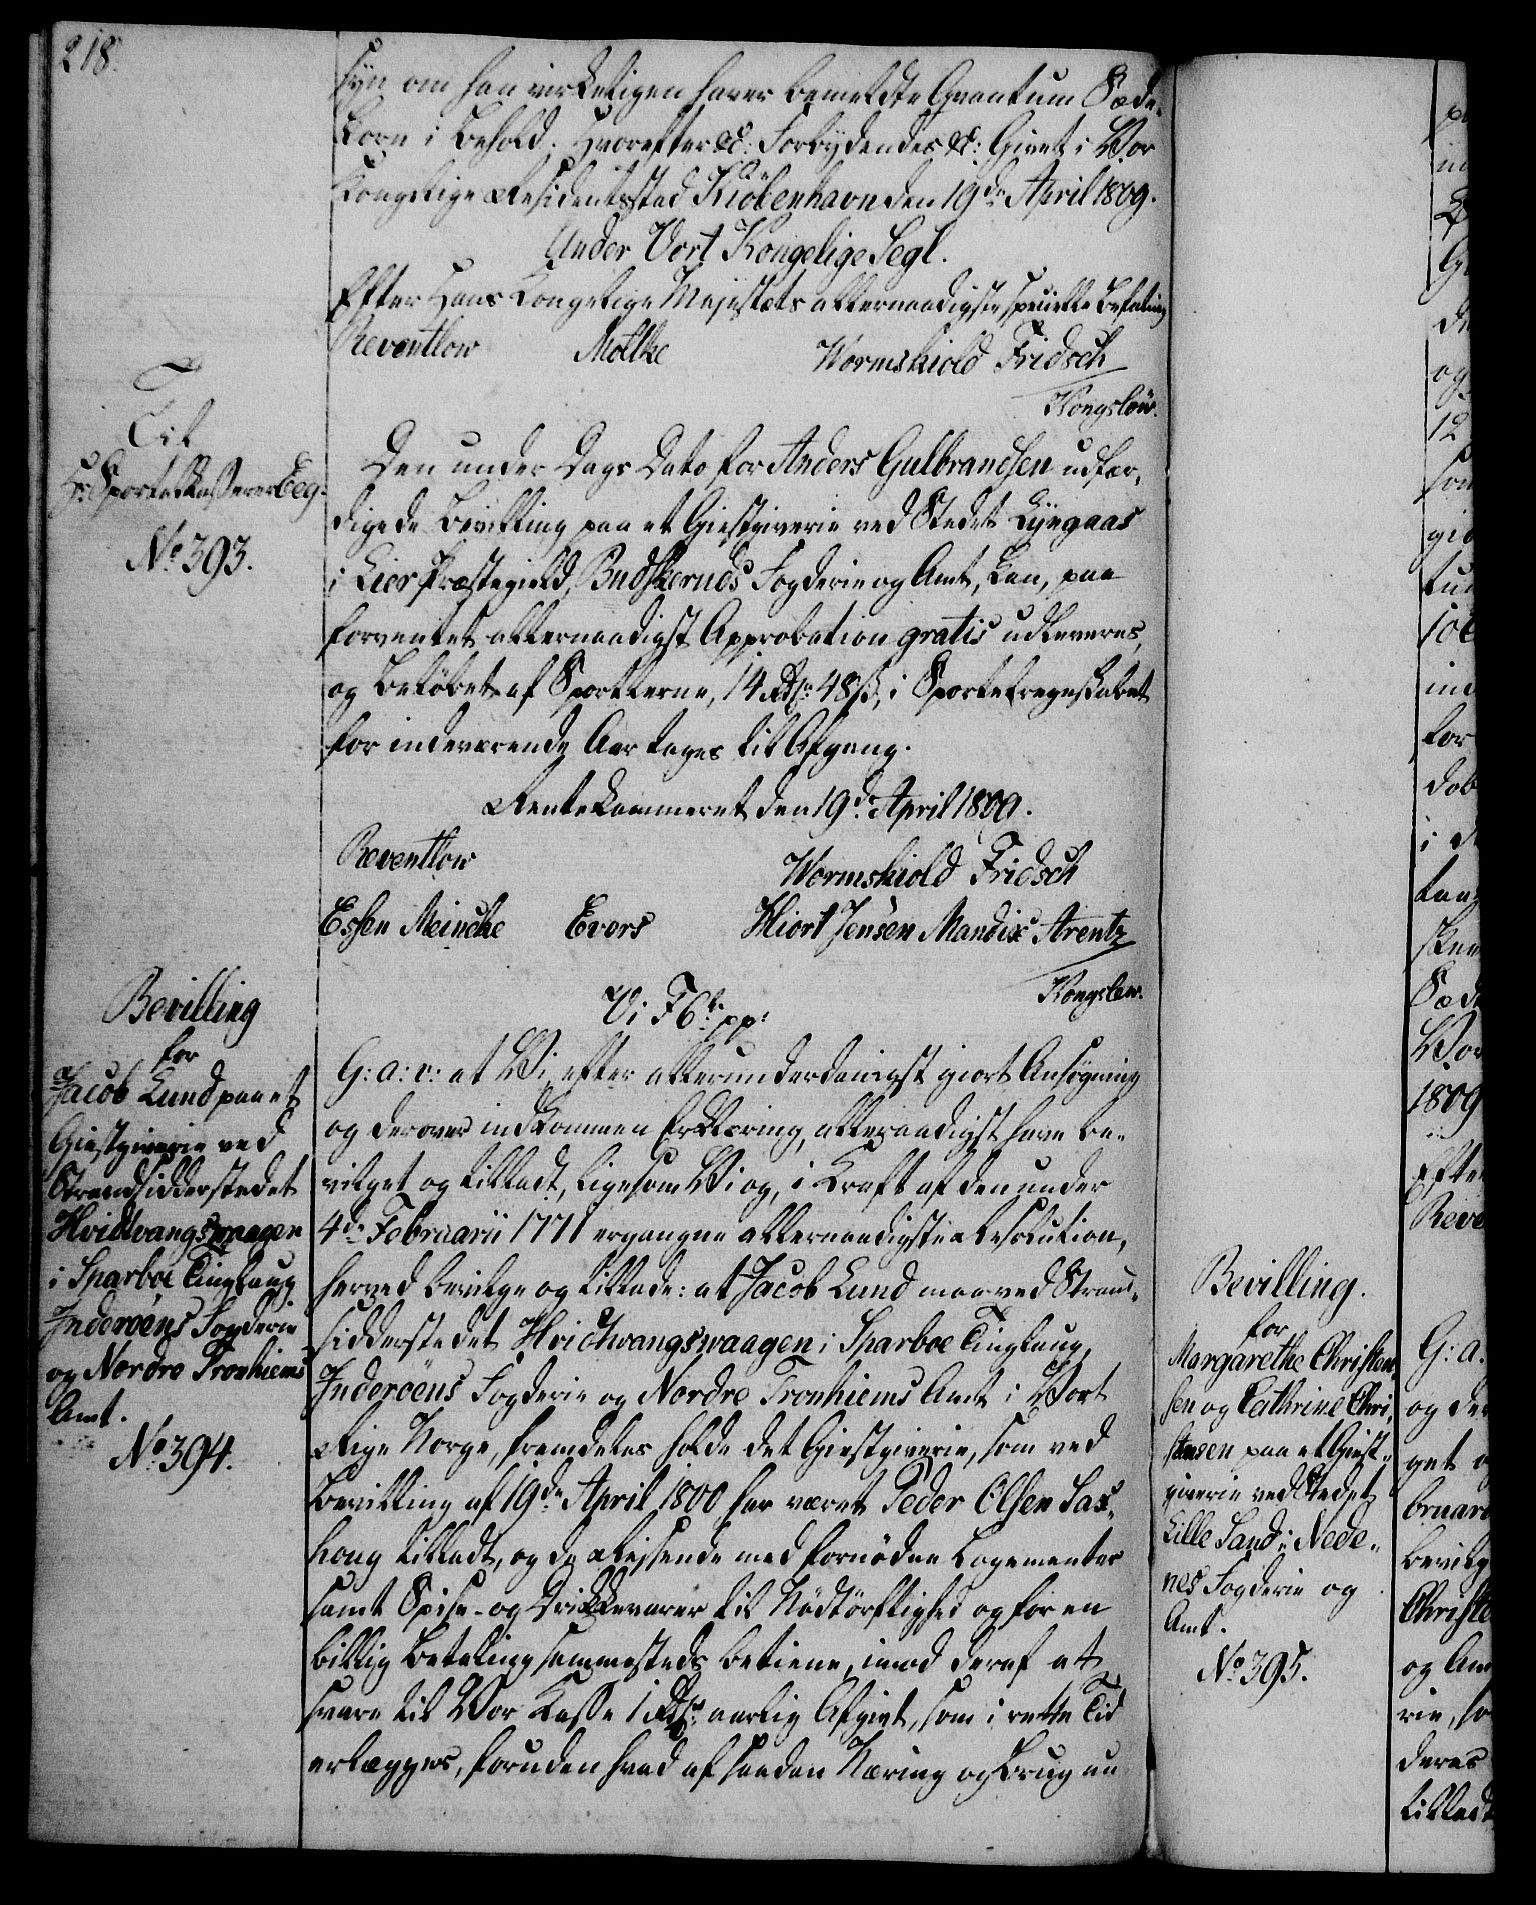 218.
syn om han virkeligen haver bemeldte Qvantum Sæde-
korn i Behold. Hvorefter &c: Forbydendes &c: Givet i Vor
Kongelige Residentsstad Kiöbenhavn den 19de April 1809.
Under Vort Kongelige Segl.
Efter Hans Kongelige Majestæts allernaadigste specielle Befaling
Reventlow Moltke Wormskiold Fridsch
Kongslöw.
Til
Hr. Sportelkasserer Beg.
No. 393.
Den under Dags Dato for Anders Gulbrandsen udfær-
digede Bevilling paa et Giestgiverie ved Stedet Lyngaas
i Lier Præstegield, Budskeruds Fogderie og Amt, kan, paa
forventet allernaadigst Approbation gratis udleveres,
og Beløbet af Sportlerne, 14 Rdr. 48 ß, i Sportelregnskabet
for indeværende Aar tages til Afgang.
Rentekammeret den 19de April 1809.
Reventlow Wormskiold Fridsch
Essen Meincke Evers Hiort Jensen Mandix Arentz
Kongslew.
Bevilling
for
Jacob Lund paa et
Giestgiverie ved
Strandsidderstedet
Hvidtvangswaagen
i Sparboe Tinglaug
Inderöens Fogderie
og Nordre Tronhiems
Amt.
No. 394.
Vi F 6te pp:
G: a: v: at Vi, efter allerunderdanigst giort Ansøgning
og derover indkommen Erklæring, allernaadigst have be-
vilget og tilladt, ligesom Vi og, i Kraft af den under
4de Februarii 1771 ergangne allernaadigste Resolution,
herved bevilge og tillade: at Jacob Lund maa ved Strand-
sidderstedet Hvidtvangswaagen i Sparboe Tinglaug,
Inderöens Fogderie og Nordre Tronhiems Amt i Vort
Rige Norge, fremdeles holde det Giestgiverie, som ved
Bevilling af 19de April 1800 har været Peder Olsen Sax-
houg tilladt, og de Reisende med fornödne Logementer
samt Spise- og Drikkevarer til Nødtörftighed og for en
billig Betaling sammesteds betiene, imod deraf at
svare til Vor Kasse 1 Rdr. aarlig Afgivt, som i rette Tid
erlægges, foruden hvad af saadan Næring og Brug nu
Bevilling.
for
Margarethe Christen-
sen og Cathrine Chri-
stensen paa et Giest-
giverie ved Stedet
Lille Sand i Nede-
nes Fogderie og
Amt.
No. 395.